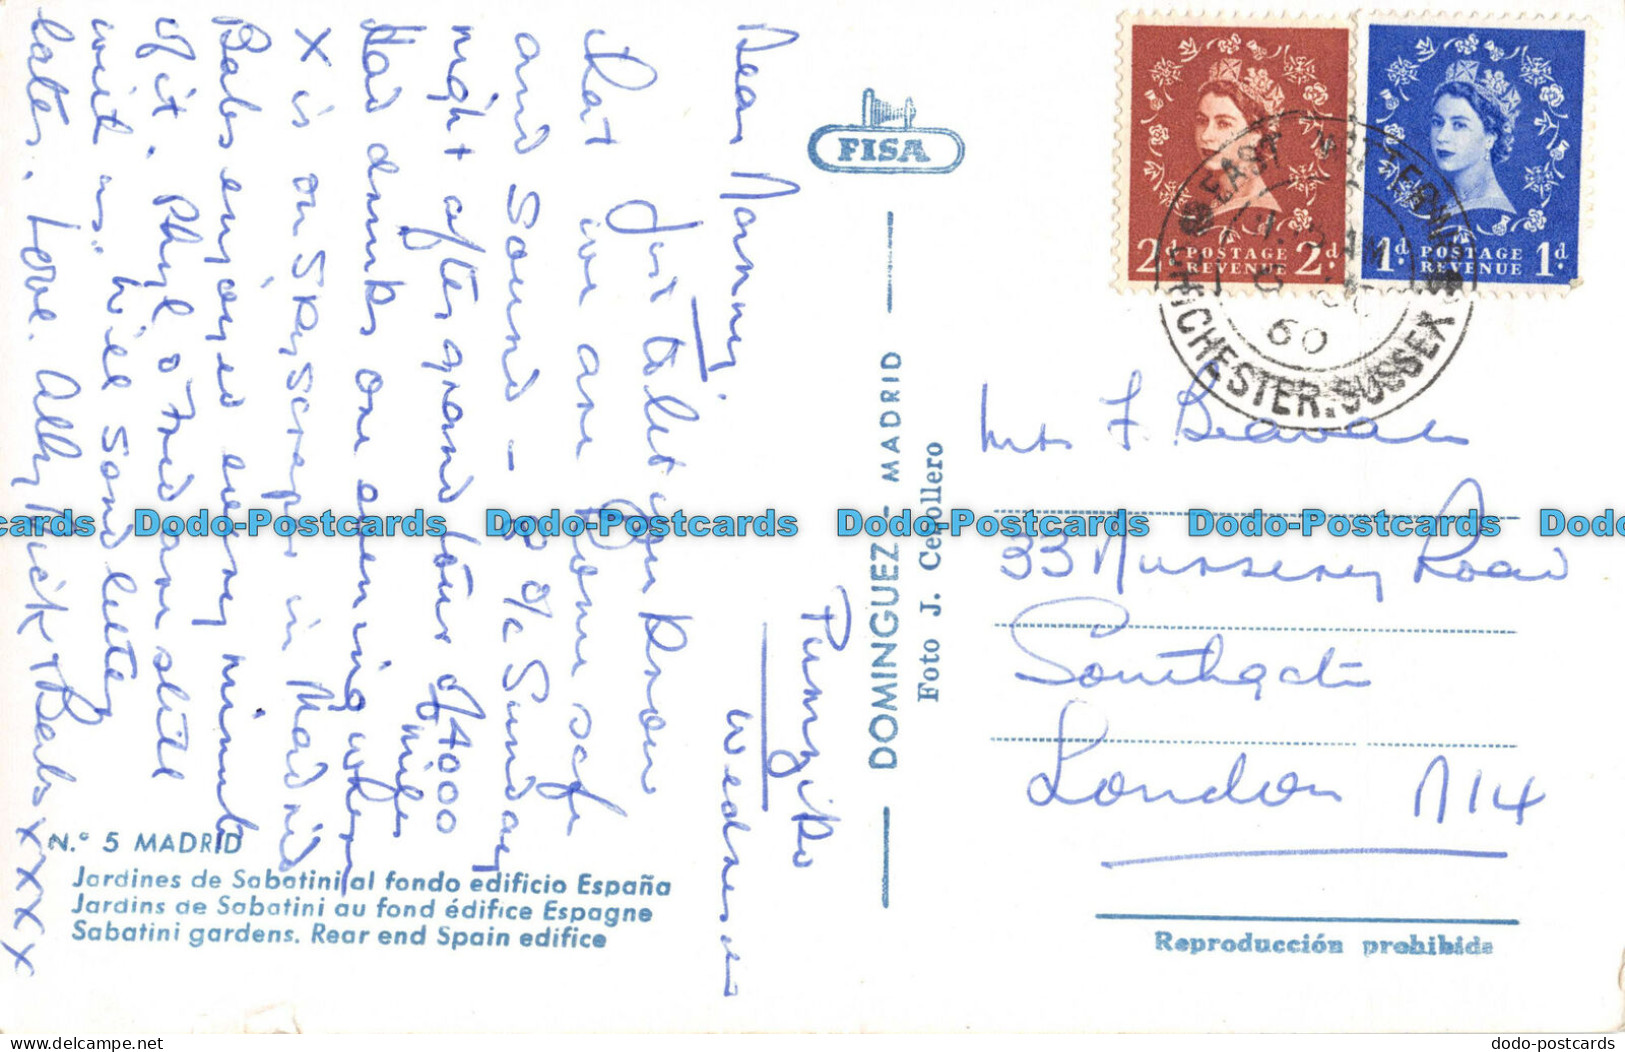 Pumziko
Wednesday
Dear Nanny,
Just to let you know
that we are home safe
and sound - 8 o/c Sunday
night after grand tour of 4000
miles
Had drinks one evening where
X is on Skyscraper in Madrid
Babs enjoyed every minute
of it. Phyl & Fred are still
with us. Will send letter
later. Love. Ally Nick & Babs X X X X
FISA
DOMINGUEZ - MADRID
Foto J. Cebollero
2d POSTAGE REVENUE 2d
1d POSTAGE REVENUE 1d
EAST WITTERING
AM
60
CHICHESTER. SUSSEX
Mrs F. Beavan
33 Nursery Road
Southgate
London N14
N.º 5 MADRID
Jardines de Sabatini al fondo edificio España
Jardins de Sabatini au fond édifice Espagne
Sabatini gardens. Rear end Spain edifice
Reproducción prohibida
cards Dodo-Postcards Dodo-Postcards Dodo-Postcards Dodo-Postcards Dodo
dodo-postcards
delcampe.net
dodo-postcards